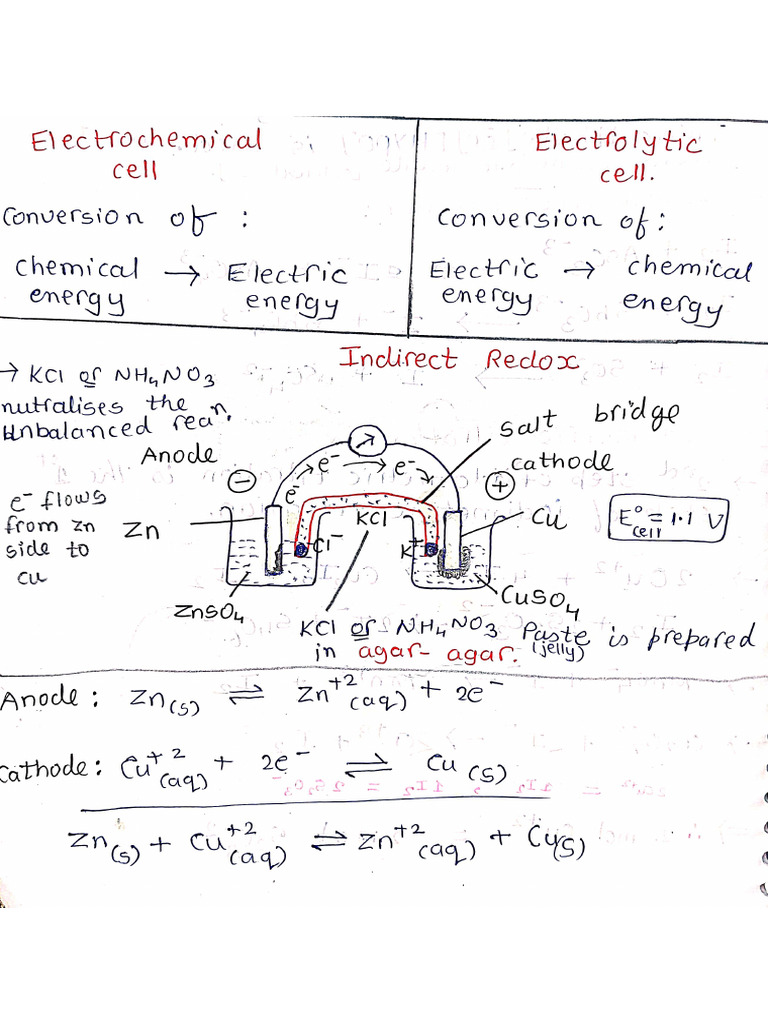 Electrochemical
cell
Conversion of :
chemical → Electric
energy energy
Electrolytic
cell.
Conversion of :
Electric → chemical
energy energy
Indirect Redox
→ KCl or NH4NO3
nutralises the
unbalanced rean.
Anode
e⁻ flows
from Zn
side to
cu
Zn
⊖
e⁻ → e⁻ → e⁻
salt bridge
cathode
⊕
Cu
E°cell = 1.1 V
KCl
Cl⁻
K⁺
ZnSO4
CuSO4
KCl or NH4NO3 Paste is prepared
(jelly)
in agar-agar.
Anode : Zn(s) ⇌ Zn⁺²(aq) + 2e⁻
Cathode : Cu⁺²(aq) + 2e⁻ ⇌ Cu(s)
Zn(s) + Cu⁺²(aq) ⇌ Zn⁺²(aq) + Cu(s)